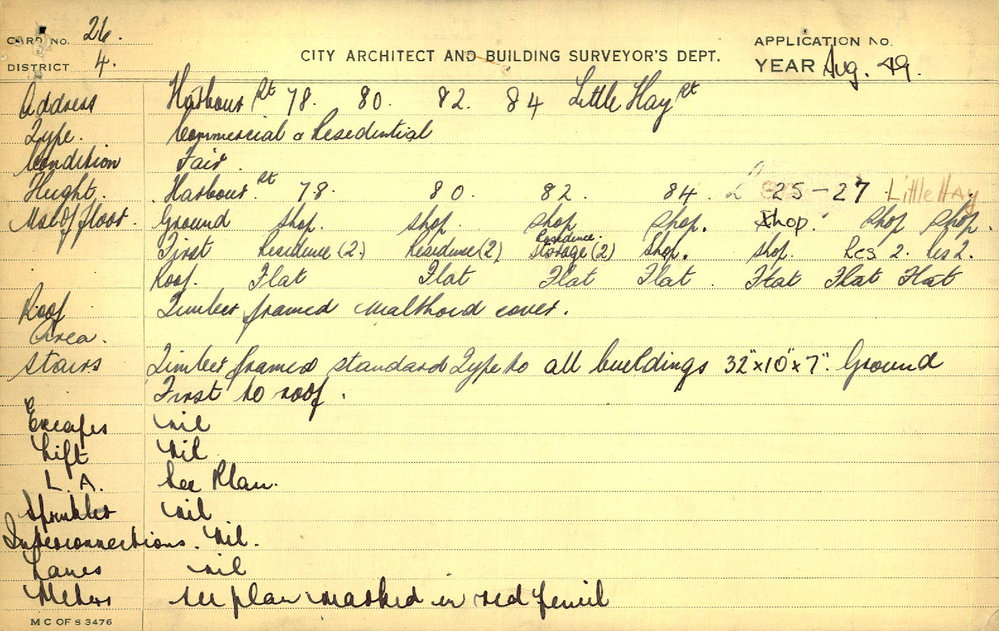 CARD No. 26.
DISTRICT 4.
CITY ARCHITECT AND BUILDING SURVEYOR'S DEPT.
APPLICATION No.
YEAR Aug. 49.
Address Harbour St 78. 80. 82. 84 Little Hay St
Type. Commercial & Residential
Condition Fair.
Height. Harbour St 78 80 82 84 25-27 Little Hay
Use of floor. Ground Shop. Shop. Shop Shop. Shop. Shop Shop.
Residence.
First Residence (2). Residence (2) Storage (2) Shop. Shop. Res 2. Res 2.
Roof. Flat Flat Flat Flat Flat Flat Flat
Roof Timber framed Malthoid cover.
Area.
Stairs Timber framed standard Type to all buildings 32"x10"x7". Ground
First to roof.
Escapes nil
Lift Nil
L.A. See Plan.
Sprinkler nil
Interconnections. Nil.
Lanes nil
Meters see plan marked in red pencil
M C OF S 3476